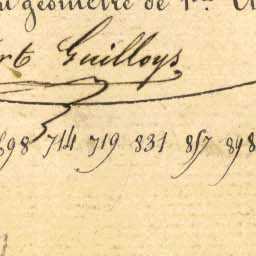 géometre de 1.re
Guilloys
698 714 719 831 857 898